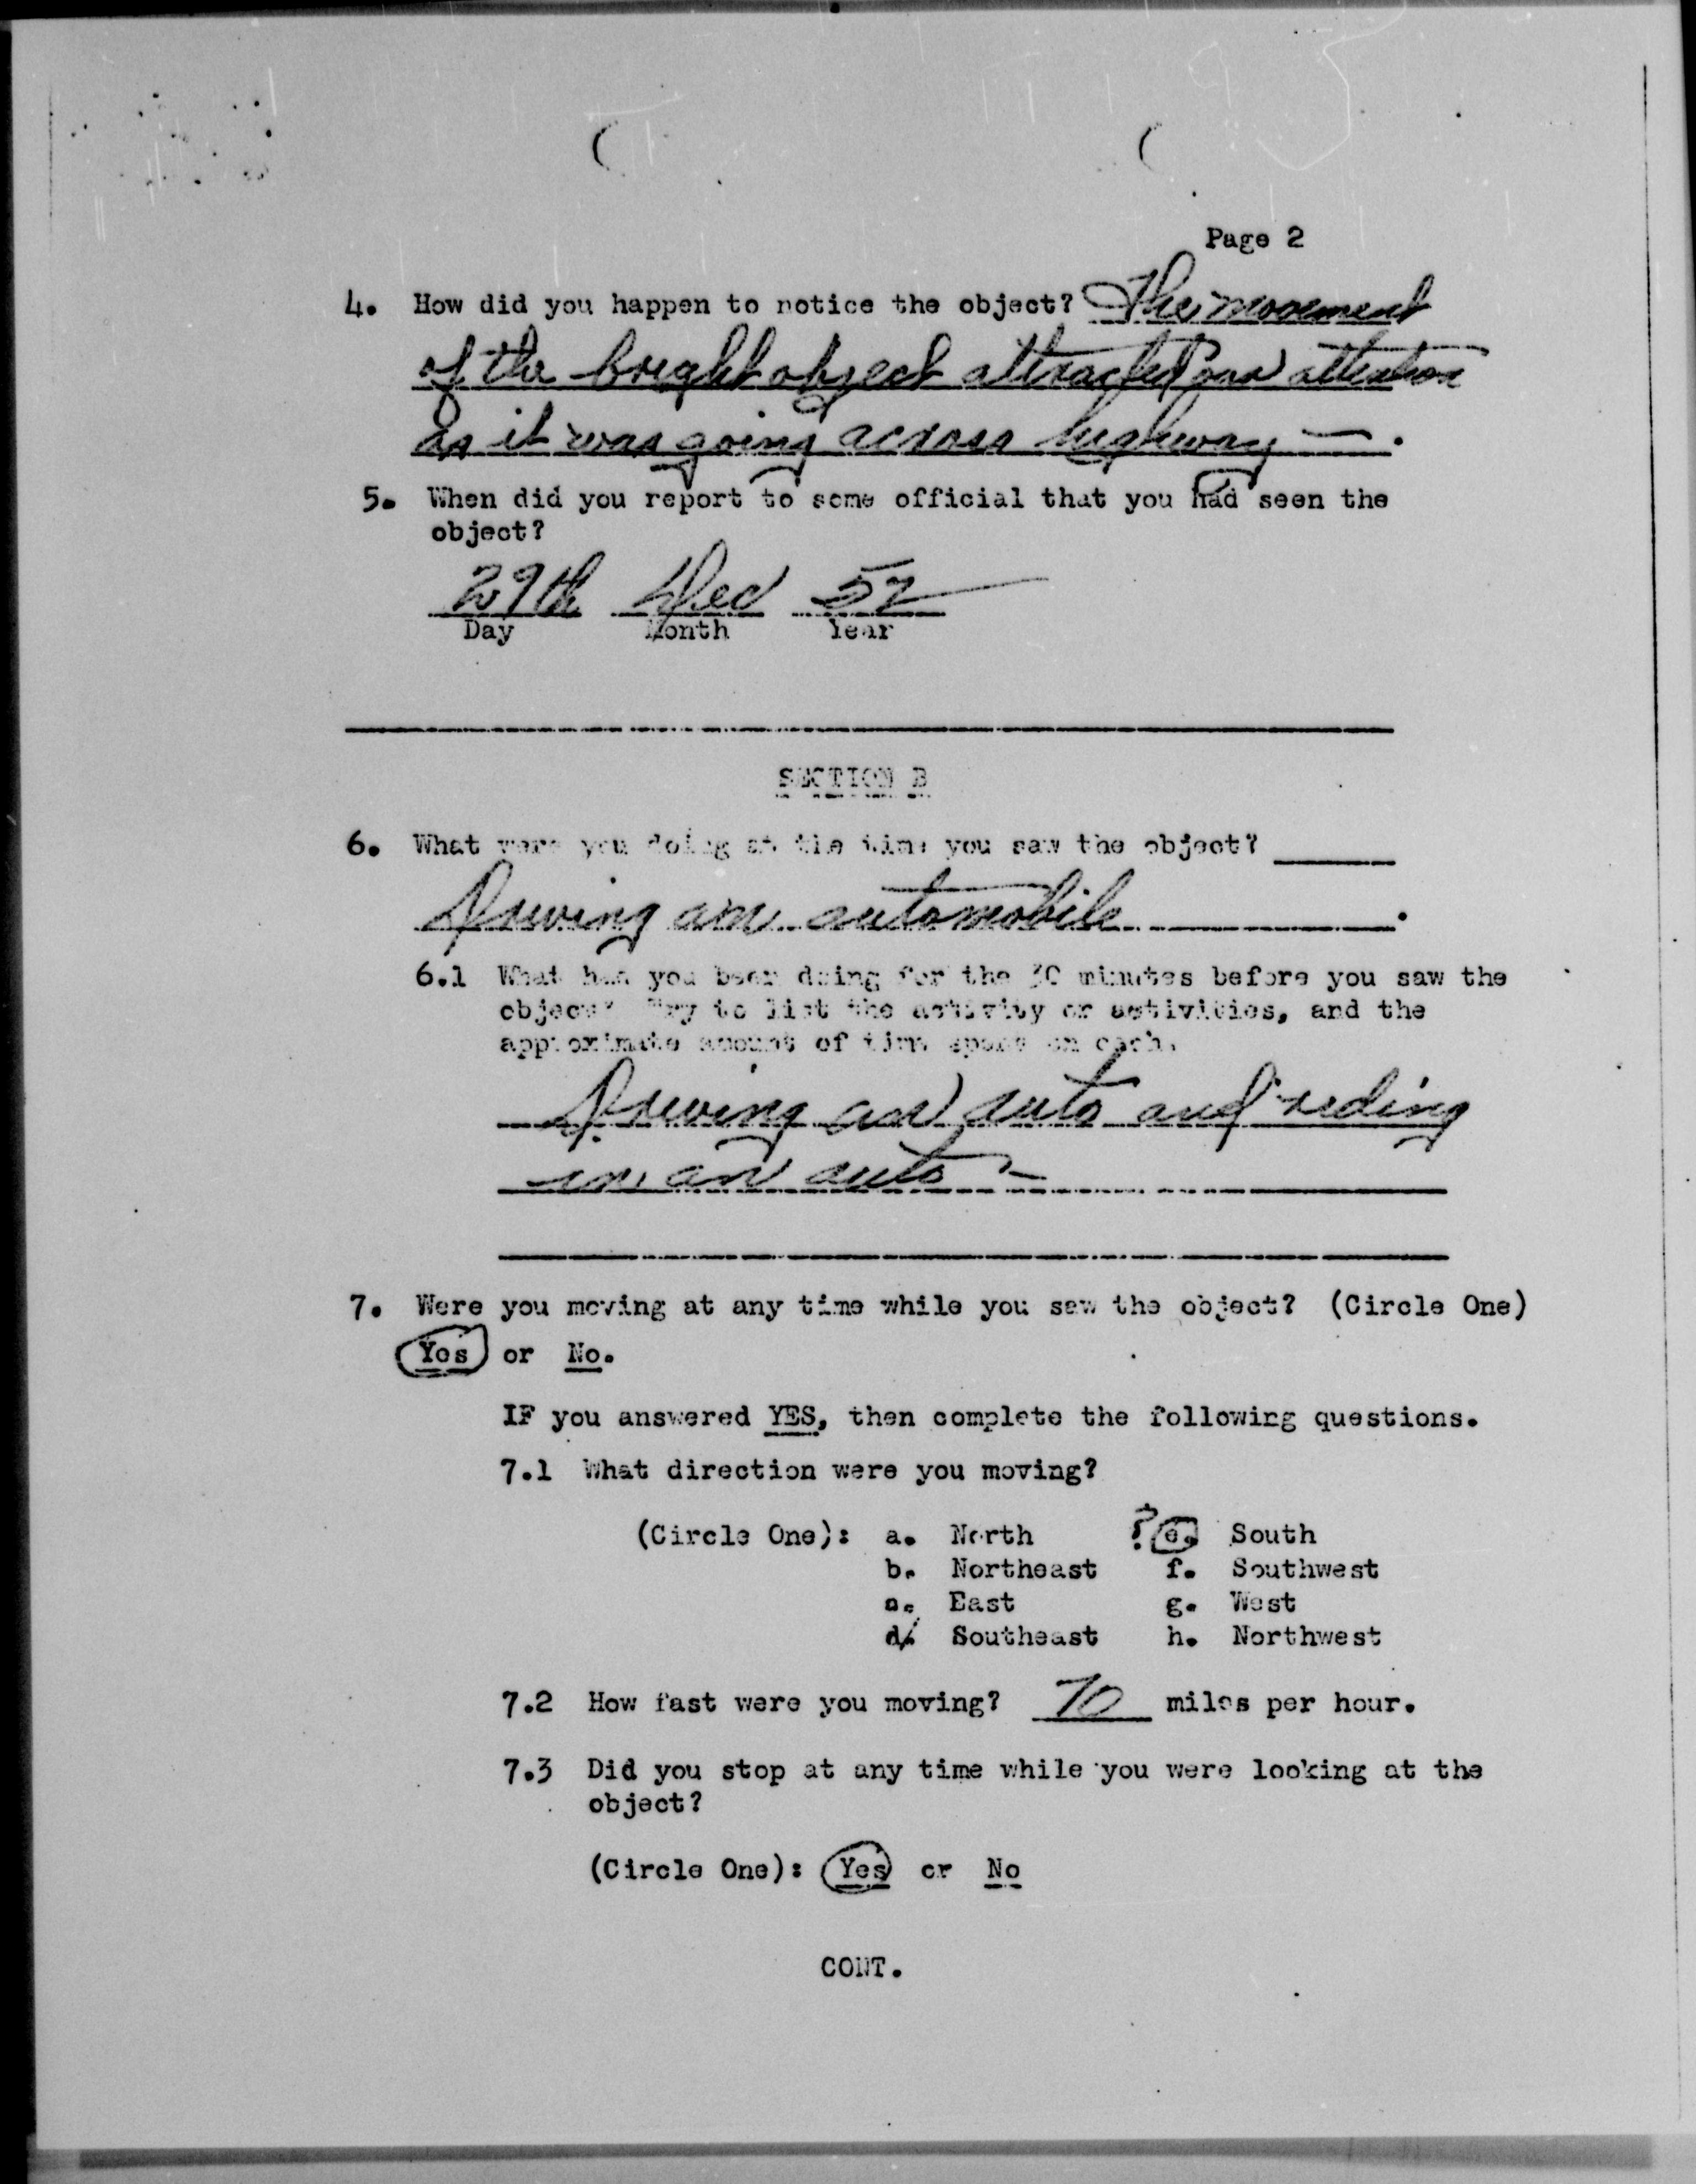 Page 2
4. How did you happen to notice the object? The movement
of the bright object attracted our attention
as it was going across highway —.
5. When did you report to some official that you had seen the
object?
29th Dec 52
Day Month Year
SECTION B
6. What were you doing at the time you saw the object?
Driving an automobile.
6.1 What had you been doing for the 30 minutes before you saw the
object? Try to list the activity or activities, and the
approximate amount of time spent on each.
Driving an auto and riding
in an auto -
7. Were you moving at any time while you saw the object? (Circle One)
Yes or No.
IF you answered YES, then complete the following questions.
7.1 What direction were you moving?
(Circle One): a. North ? e. South
b. Northeast f. Southwest
c. East g. West
d. Southeast h. Northwest
7.2 How fast were you moving? 70 miles per hour.
7.3 Did you stop at any time while you were looking at the
object?
(Circle One): Yes or No
CONT.